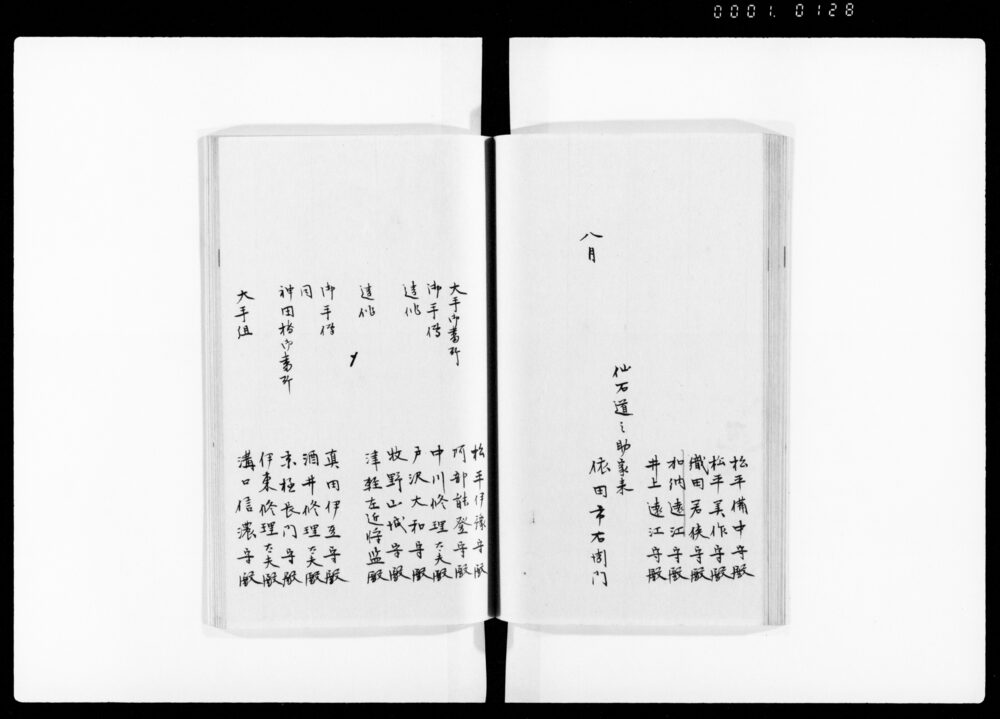 0001. 0128
松平備中守殿
松平美作守殿
織田若狭守殿
加納遠江守殿
井上遠江守殿
仙石道之助家来
依田市右衛門
八月
松平伊豫守殿
大手御番所
阿部能登守殿
御手傳
中川修理大夫殿
戸沢大和守殿
牧野山城守殿
津軽左近将監殿
御手傳
真田伊豆守殿
同
酒井修理大夫殿
京極長門守殿
伊東修理大夫殿
大手組
溝口信濃守殿